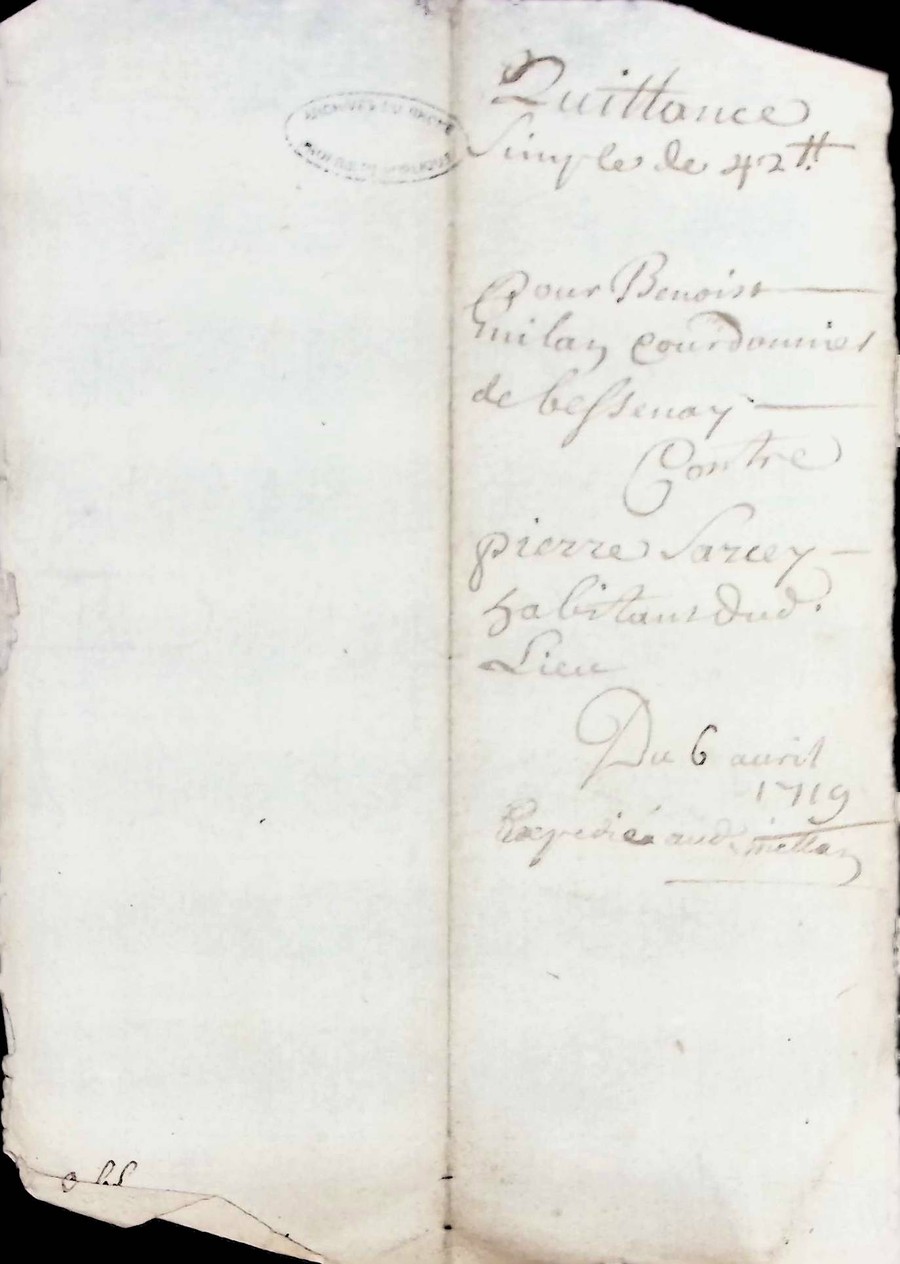 ARCHIVES DU RHONE
Quittance
Simple de 42 ℔
Pour Benoist
milan courdonnier
de bessenay
Contre
pierre Sarcey
habitant dud.
Lieu
Du 6 avril
1719
Expedié aud. millan